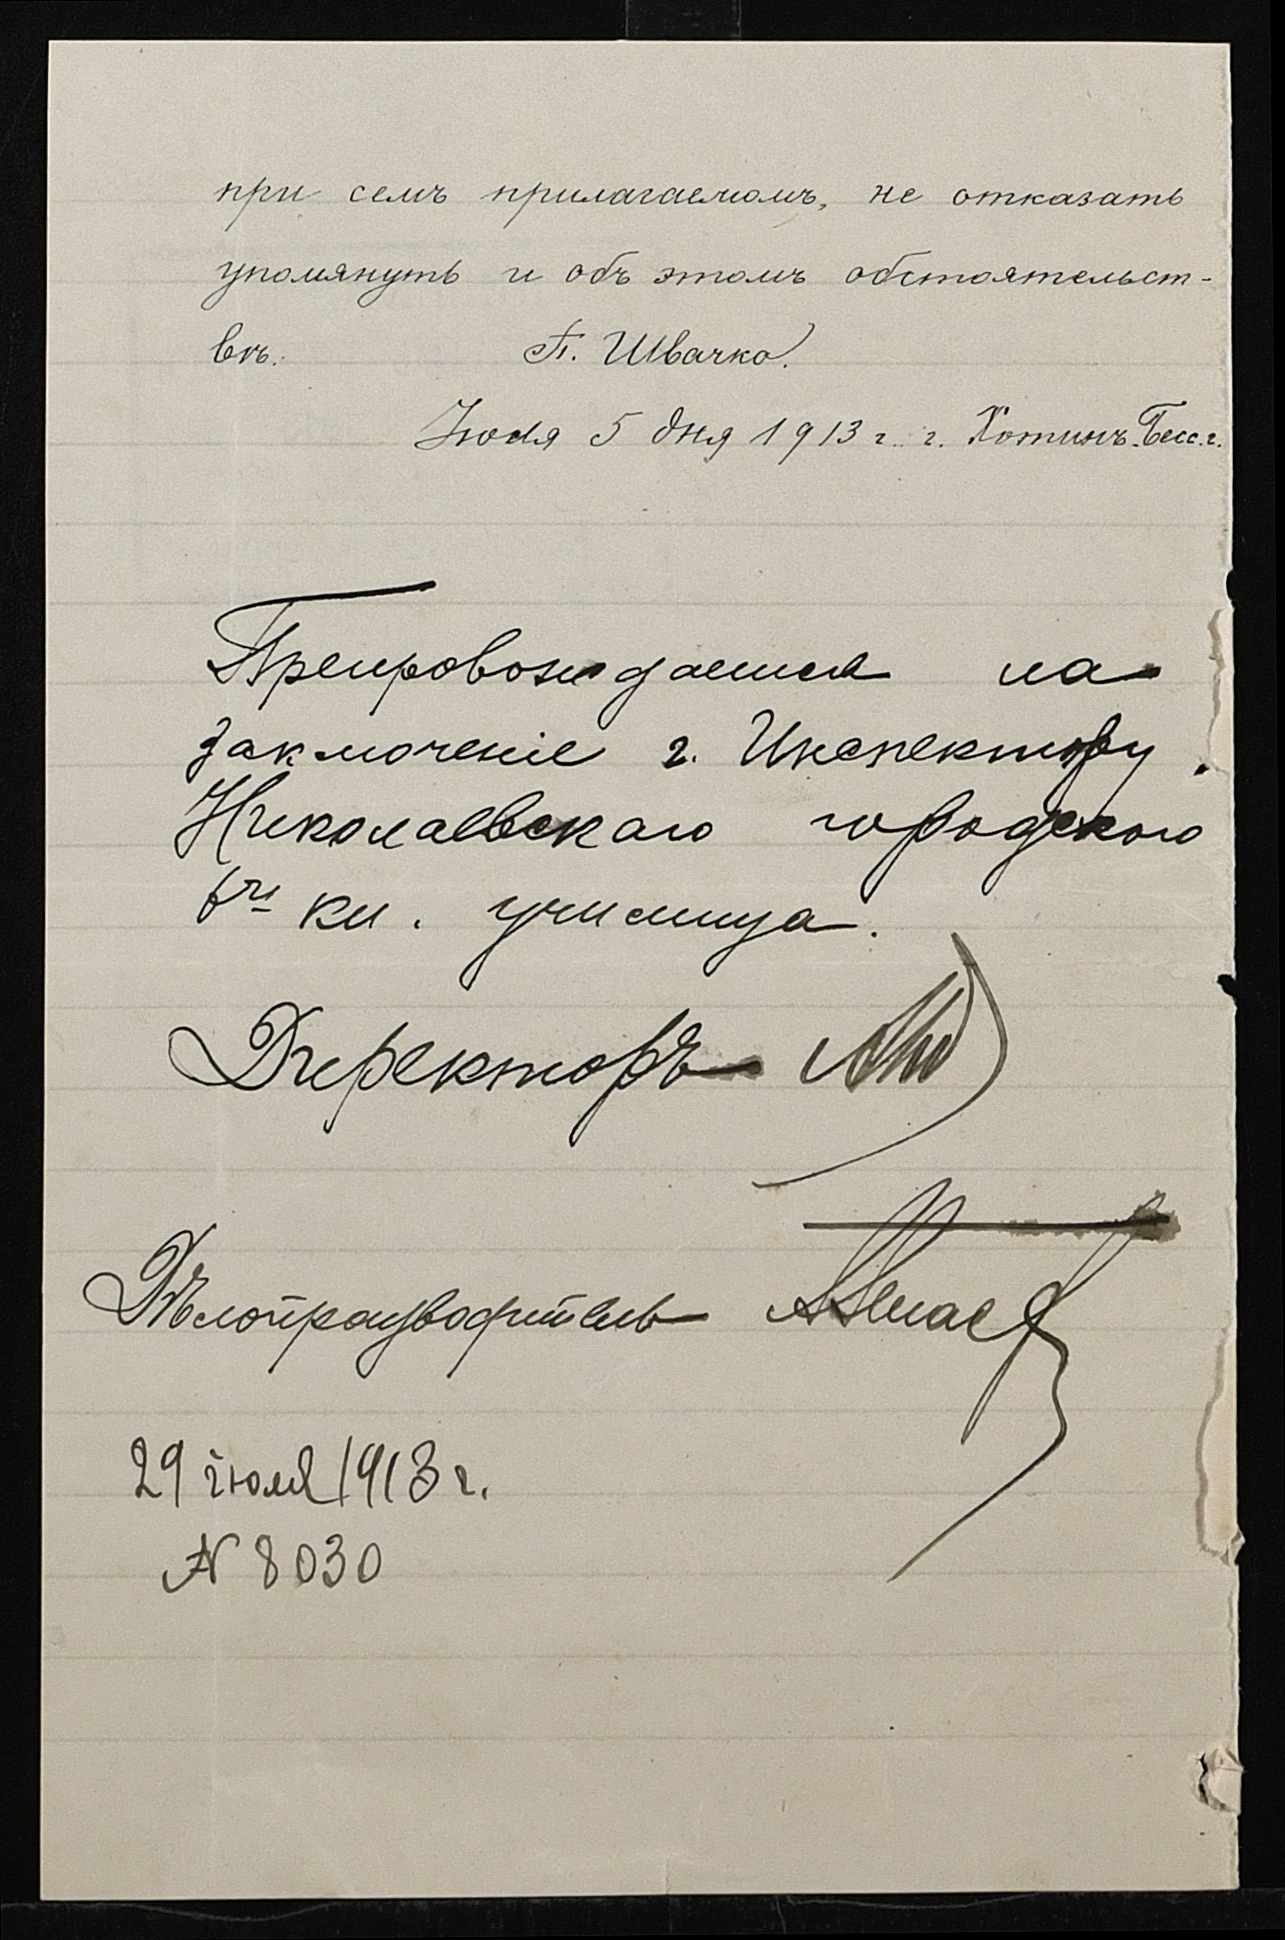 при семъ прилагаемомъ, не отказать
упомянуть и объ этомъ обстоятельст-
вѣ. П. Швачко.
Іюля 5 дня 1913 г. г. Хотинъ Бесс. г.
Препровождается на
заключеніе г. Инспектору
Николаевскаго городского
6ти кл. училища.
Директоръ
Дѣлопроизводитель
29 іюля 1913 г.
№ 8030